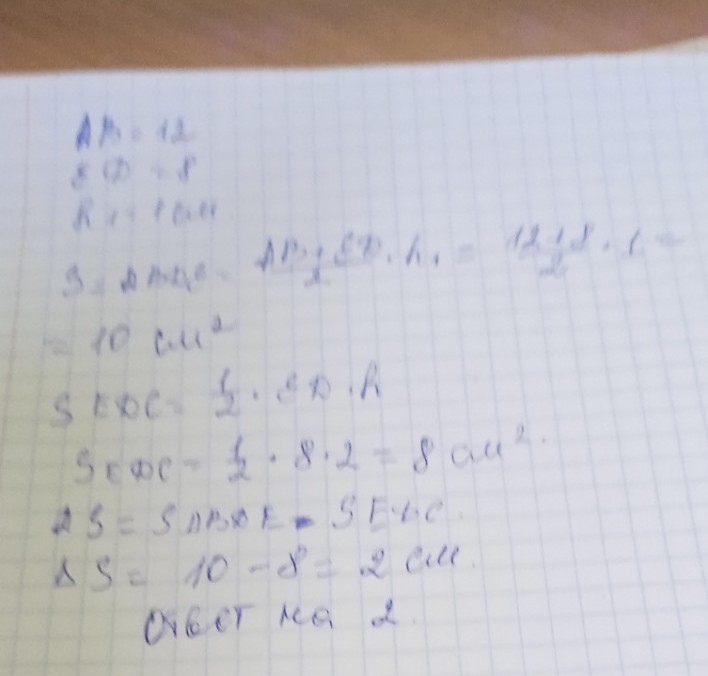 AB = 12
ED = 8
h₁ = 1 см
S = ABDE = AB+ED/2 · h₁ = 12+8/2 · 1 =
= 10 см²
S EDC = 1/2 · ED · h
S EDC = 1/2 · 8 · 2 = 8 см².
ΔS = S ABDE - S EDC.
ΔS = 10 - 8 = 2 см.
Ответ на 2.